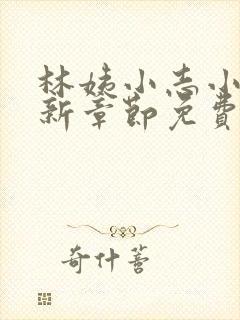 林姨小志小
新章節免費
奇什薈